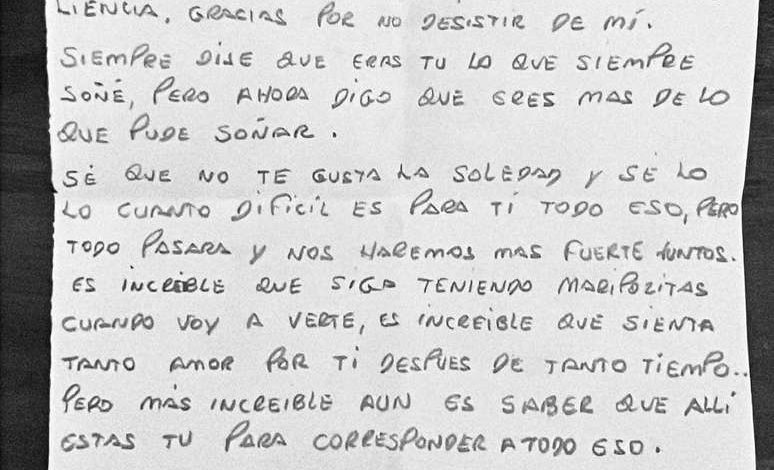 LIENCIA, GRACIAS POR NO DESISTIR DE MÍ.
SIEMPRE DIJE QUE ERAS TU LO QUE SIEMPRE
SOÑÉ, PERO AHORA DIGO QUE ERES MAS DE LO
QUE PUDE SOÑAR.
SÉ QUE NO TE GUSTA LA SOLEDAD Y SÉ LO
LO CUANTO DIFICIL ES PARA TI TODO ESO, PERO
TODO PASARA Y NOS HAREMOS MAS FUERTE JUNTOS.
ES INCREIBLE QUE SIGA TENIENDO MARIPOZITAS
CUANDO VOY A VERTE, ES INCREIBLE QUE SIENTA
TANTO AMOR POR TI DESPUES DE TANTO TIEMPO..
PERO MÁS INCREIBLE AUN ES SABER QUE ALLÍ
ESTAS TU PARA CORRESPONDER A TODO ESO.